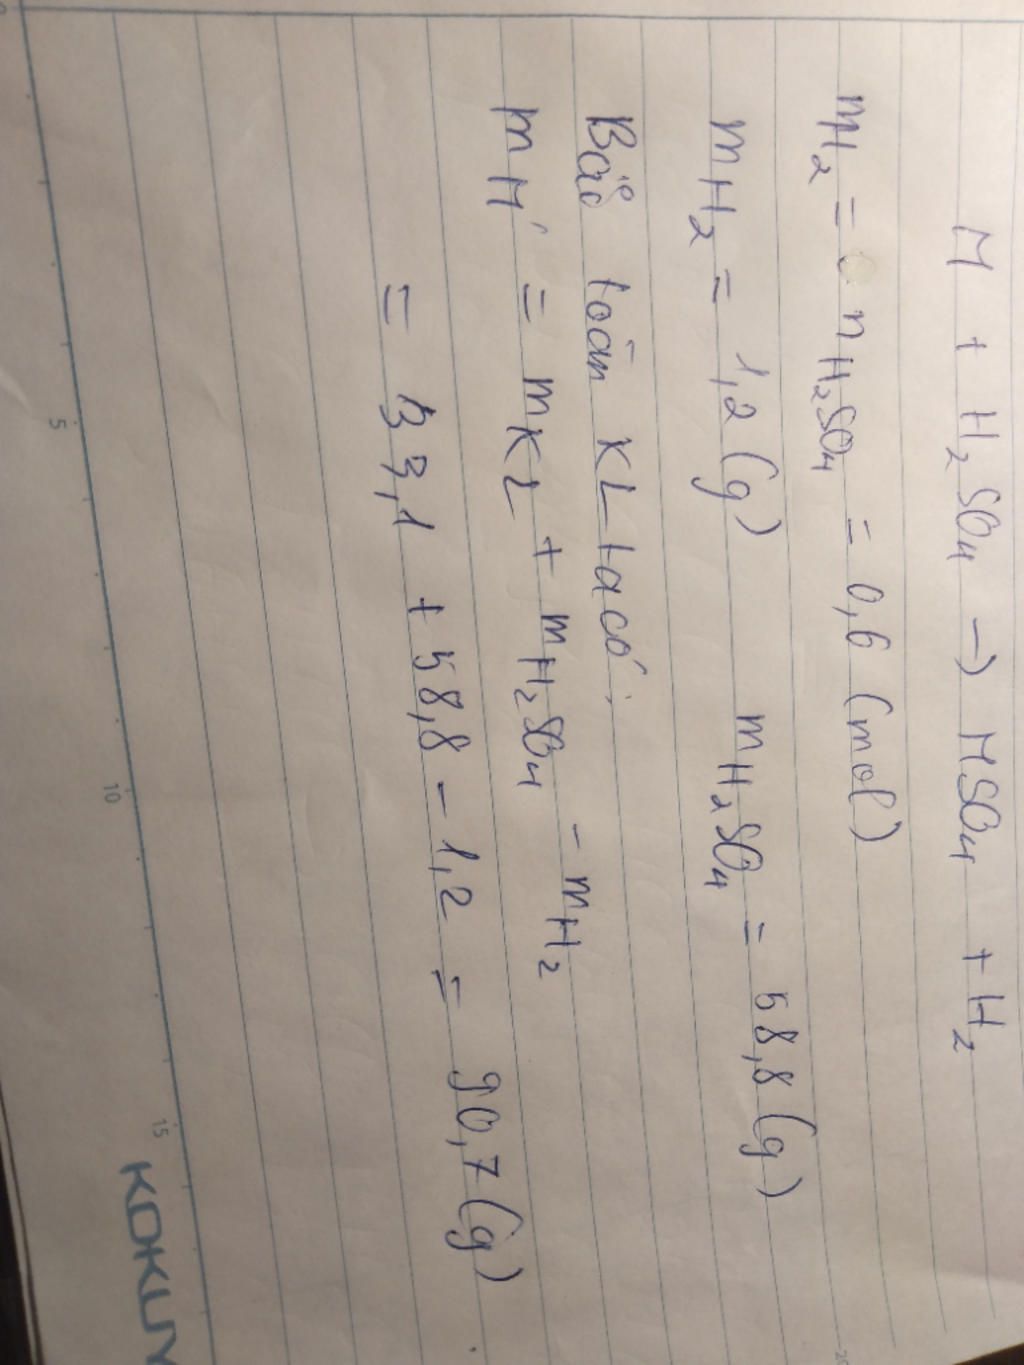 M + H₂SO₄ → MSO₄ + H₂
mH₂ = nH₂SO₄ = 0,6 (mol)
mH₂ = 1,2 (g) mH₂SO₄ = 58,8 (g)
Bảo toàn KL ta có:
mM' = mKL + mH₂SO₄ - mH₂
= 33,1 + 58,8 - 1,2 = 90,7 (g)
5 10 15 20
KOKUY